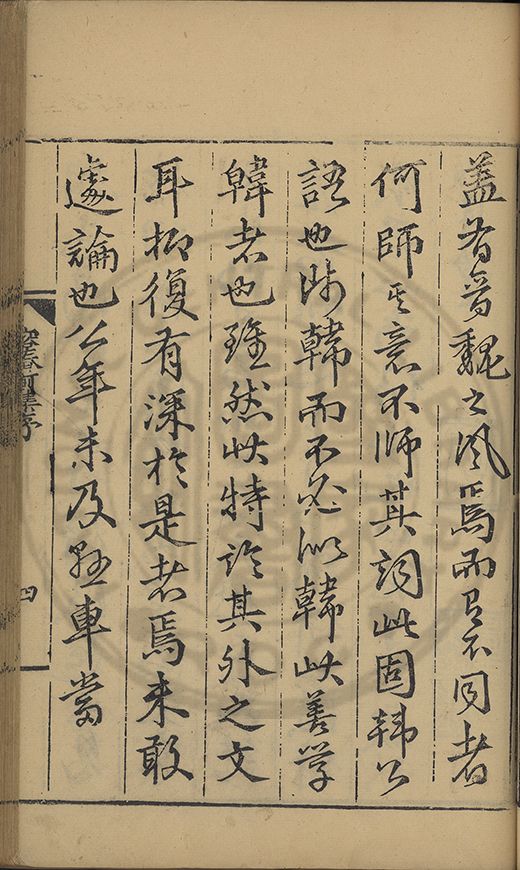 盖有晉魏之风焉而又不同者
何師其意不師其詞此固韩公
語也师韓而不必似韓此善学
韓者也雖然此特論其外之文
耳抑復有深於是者焉未敢
遽論也公年未及懸車當
四